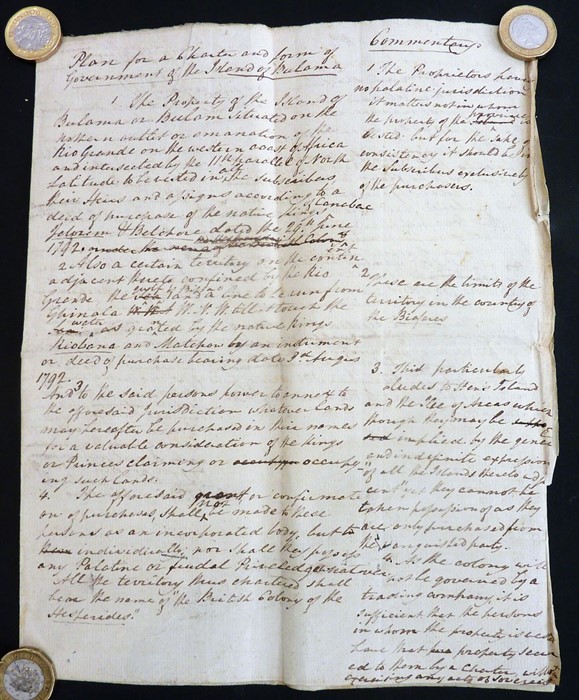 Plan for a Charter and form of
Government of the Island of Bulama
1 The Property of the Island of
Bulama or Bulam situated on the
northern outlet or emanation of the
Rio Grande on the western coast of Africa
and intersected by the 11th parallel of North
Latitude to be vested in the subscribers
their Heirs and assigns according to a
deed of purchase of the native Kings
Jalorem & Belchore dated the 29th June
1792
2 Also a certain territory on the contin
adjacent thereto confined by the Rio
Grande the and a line to be run from
Ghinala W. N. W. till it touch the
water as ceded by the native Kings
Niobana and Matchow by an instrument
or deed of purchase bearing date 3rd Augus
1792.
3 And to the said persons power to annex to
the aforesaid Jurisdiction whatever lands
may hereafter be purchased in their names
for a valuable consideration of the Kings
or Princes claiming or occupy
ing such lands.
4. The aforesaid grant or confirmati
on of purchases, shall not be made to these
persons as an incorporated body, but to
individually, nor shall they possess
any Palatine or feudal Priviledges whatever
All the territory thus chartered shall
bear the name of "the British Colony of the
Hesperides."
Commentary
1 The Proprietors have
no palatine jurisdiction
it matters not in whom
the property of the is
vested but for the sake of
consistency it should be in
the Subscribers exclusively
of the purchasers.
2 These are the limits of the
territory in the country of
the Biafares
3. This particularly
aludes to Hen Island
and the Isle of Areas which
though they may be
implied by the gene
and indefinite expression
"of all the Islands thereto adja
cent" yet they cannot be
taken possession of as they
are only purchased from
the vanquished party.
4. As the colony will
not be governed by a
trading company, it is
sufficient that the persons
in whom the property is vested
have that property secur
ed to them by a Charter, without
exercising any acts of sovereig